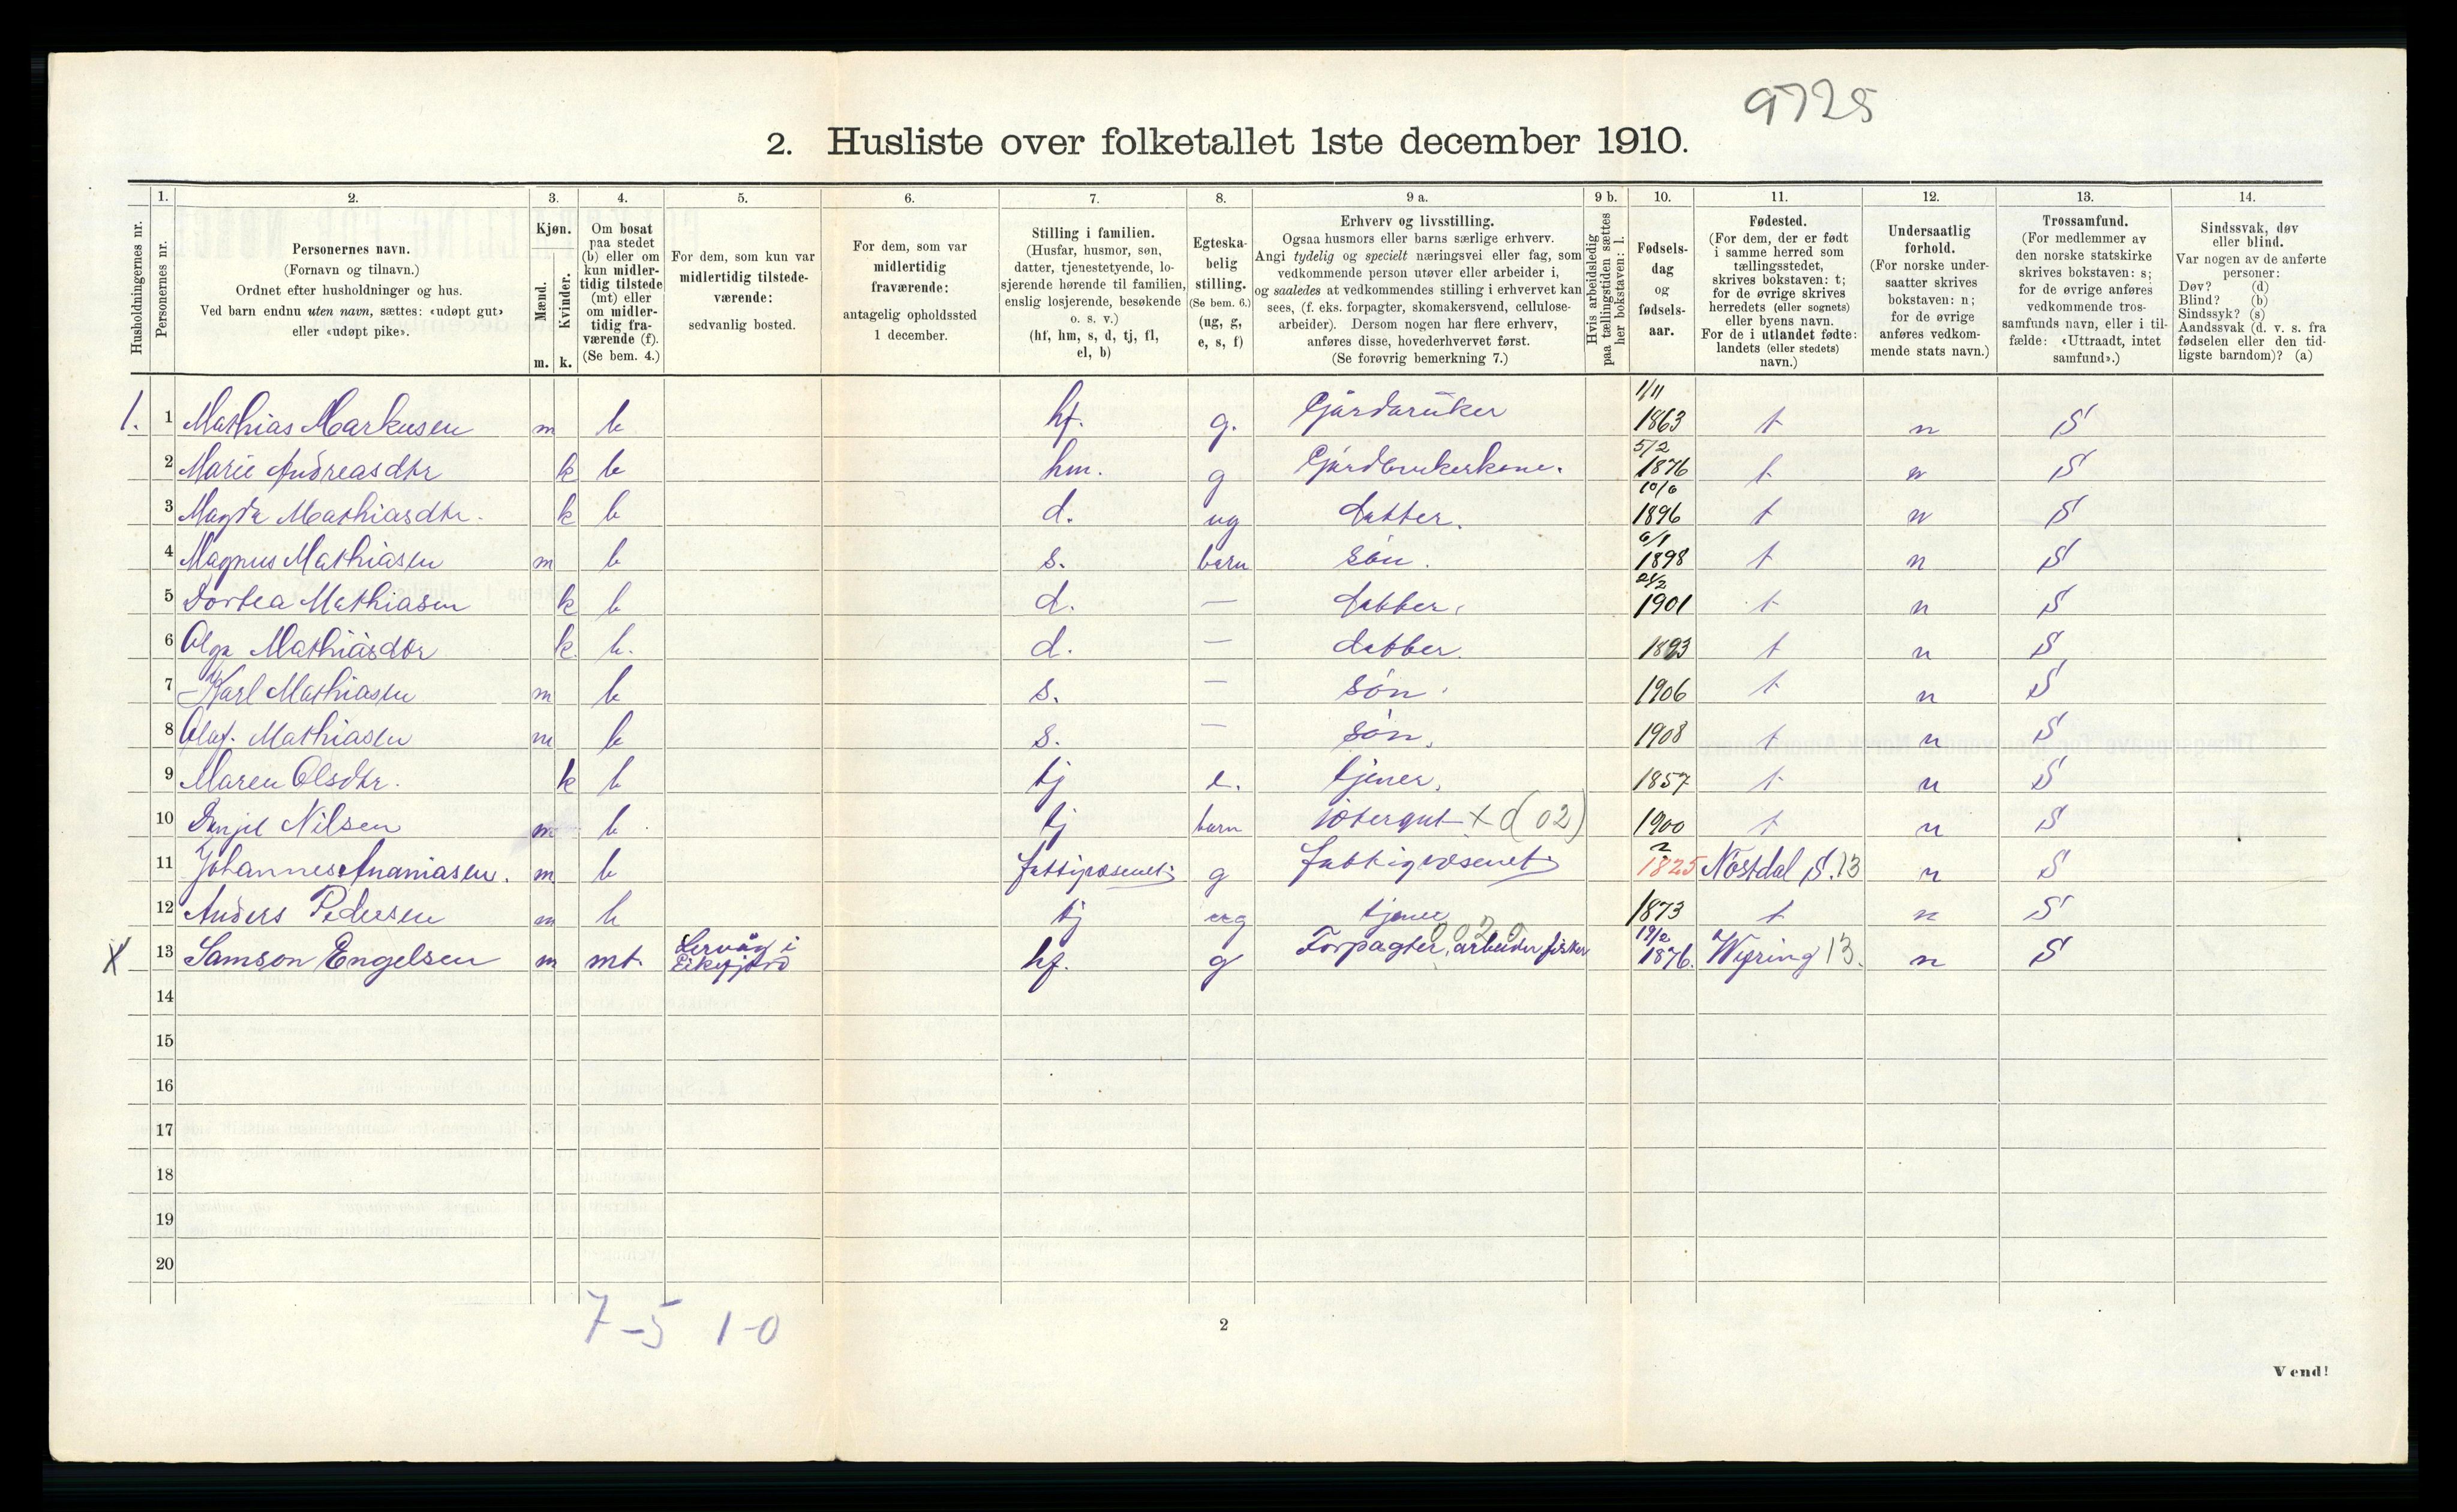 9725
2. Husliste over folketallet 1ste december 1910.
Husholdningernes nr.
1. Personernes nr.
2. Personernes navn.
(Fornavn og tilnavn.)
Ordnet efter husholdninger og hus.
Ved barn endnu uten navn, sættes: «udøpt gut»
eller «udøpt pike».
3. Kjøn.
Mænd. m.
Kvinder. k.
4. Om bosat
paa stedet
(b) eller om
kun midler-
tidig tilstede
(mt) eller
om midler-
tidig fra-
værende (f).
(Se bem. 4.)
5. For dem, som kun var
midlertidig tilstede-
værende:
sedvanlig bosted.
6. For dem, som var
midlertidig
fraværende:
antagelig opholdssted
1 december.
7. Stilling i familien.
(Husfar, husmor, søn,
datter, tjenestetyende, lo-
sjerende hørende til familien,
enslig losjerende, besøkende
o. s. v.)
(hf, hm, s, d, tj, fl,
el, b)
8. Egteska-
belig
stilling.
(Se bem. 6.)
(ug, g,
e, s, f)
9 a. Erhverv og livsstilling.
Ogsaa husmors eller barns særlige erhverv.
Angi tydelig og specielt næringsvei eller fag, som
vedkommende person utøver eller arbeider i,
og saaledes at vedkommendes stilling i erhvervet kan
sees, (f. eks. forpagter, skomakersvend, cellulose-
arbeider). Dersom nogen har flere erhverv,
anføres disse, hovederhvervet først.
(Se forøvrig bemerkning 7.)
9 b. Hvis arbeidsledig
paa tællingstiden sættes
her bokstaven: l.
10. Fødsels-
dag
og
fødsels-
aar.
11. Fødested.
(For dem, der er født
i samme herred som
tællingsstedet,
skrives bokstaven: t;
for de øvrige skrives
herredets (eller sognets)
eller byens navn.
For de i utlandet fødte:
landets (eller stedets)
navn.)
12. Undersaatlig
forhold.
(For norske under-
saatter skrives
bokstaven: n;
for de øvrige
anføres vedkom-
mende stats navn.)
13. Trossamfund.
(For medlemmer av
den norske statskirke
skrives bokstaven: s;
for de øvrige anføres
vedkommende tros-
samfunds navn, eller i til-
fælde: «Uttraadt, intet
samfund».)
14. Sindssvak, døv
eller blind.
Var nogen av de anførte
personer:
Døv? (d)
Blind? (b)
Sindssyk? (s)
Aandssvak (d. v. s. fra
fødselen eller den tid-
ligste barndom)? (a)
1. 1 Mathias Markusen m b hf. g. Gårdbruker 1/11 1863 t n S
2 Marie Andreasdtr k b hm. g Gårdbrukerkone. 5/2 1876 t n S
3 Magda Mathiasdtr. k b d. ug datter. 10/6 1896 t n S
4 Magnus Mathiasen m b s. barn søn. 6/1 1898 t n S
5 Dortea Mathiasen k b d. — datter. 1901 t n S
6 Olga Mathiasdtr k. b. d. — datter. t n S
7 Karl Mathiasen m b s. — søn. 1906 t n S
8 Olaf. Mathiasen m b s. — søn. 1908 t n S
9 Maren Olsdtr. k b tj e. tjener. 1857 t n S
10 Nilsen m b. tj barn + d (02) 1900 t n S
11 Johannes Ananiasen. m b fattigvæsenet g fattigvæsenet 1825 Nøstdal S. 13 n S
12 Anders Pedersen m b tj ug tjener 1873 t n S
X 13 Samson Engelsen m mt. Lervåg i Eikefjord hf. g Forpagter, arbeider fisker 19/2 1876. 13. n S
14
15
16
17
18
19
20
7-5 1-0
2
Vend!